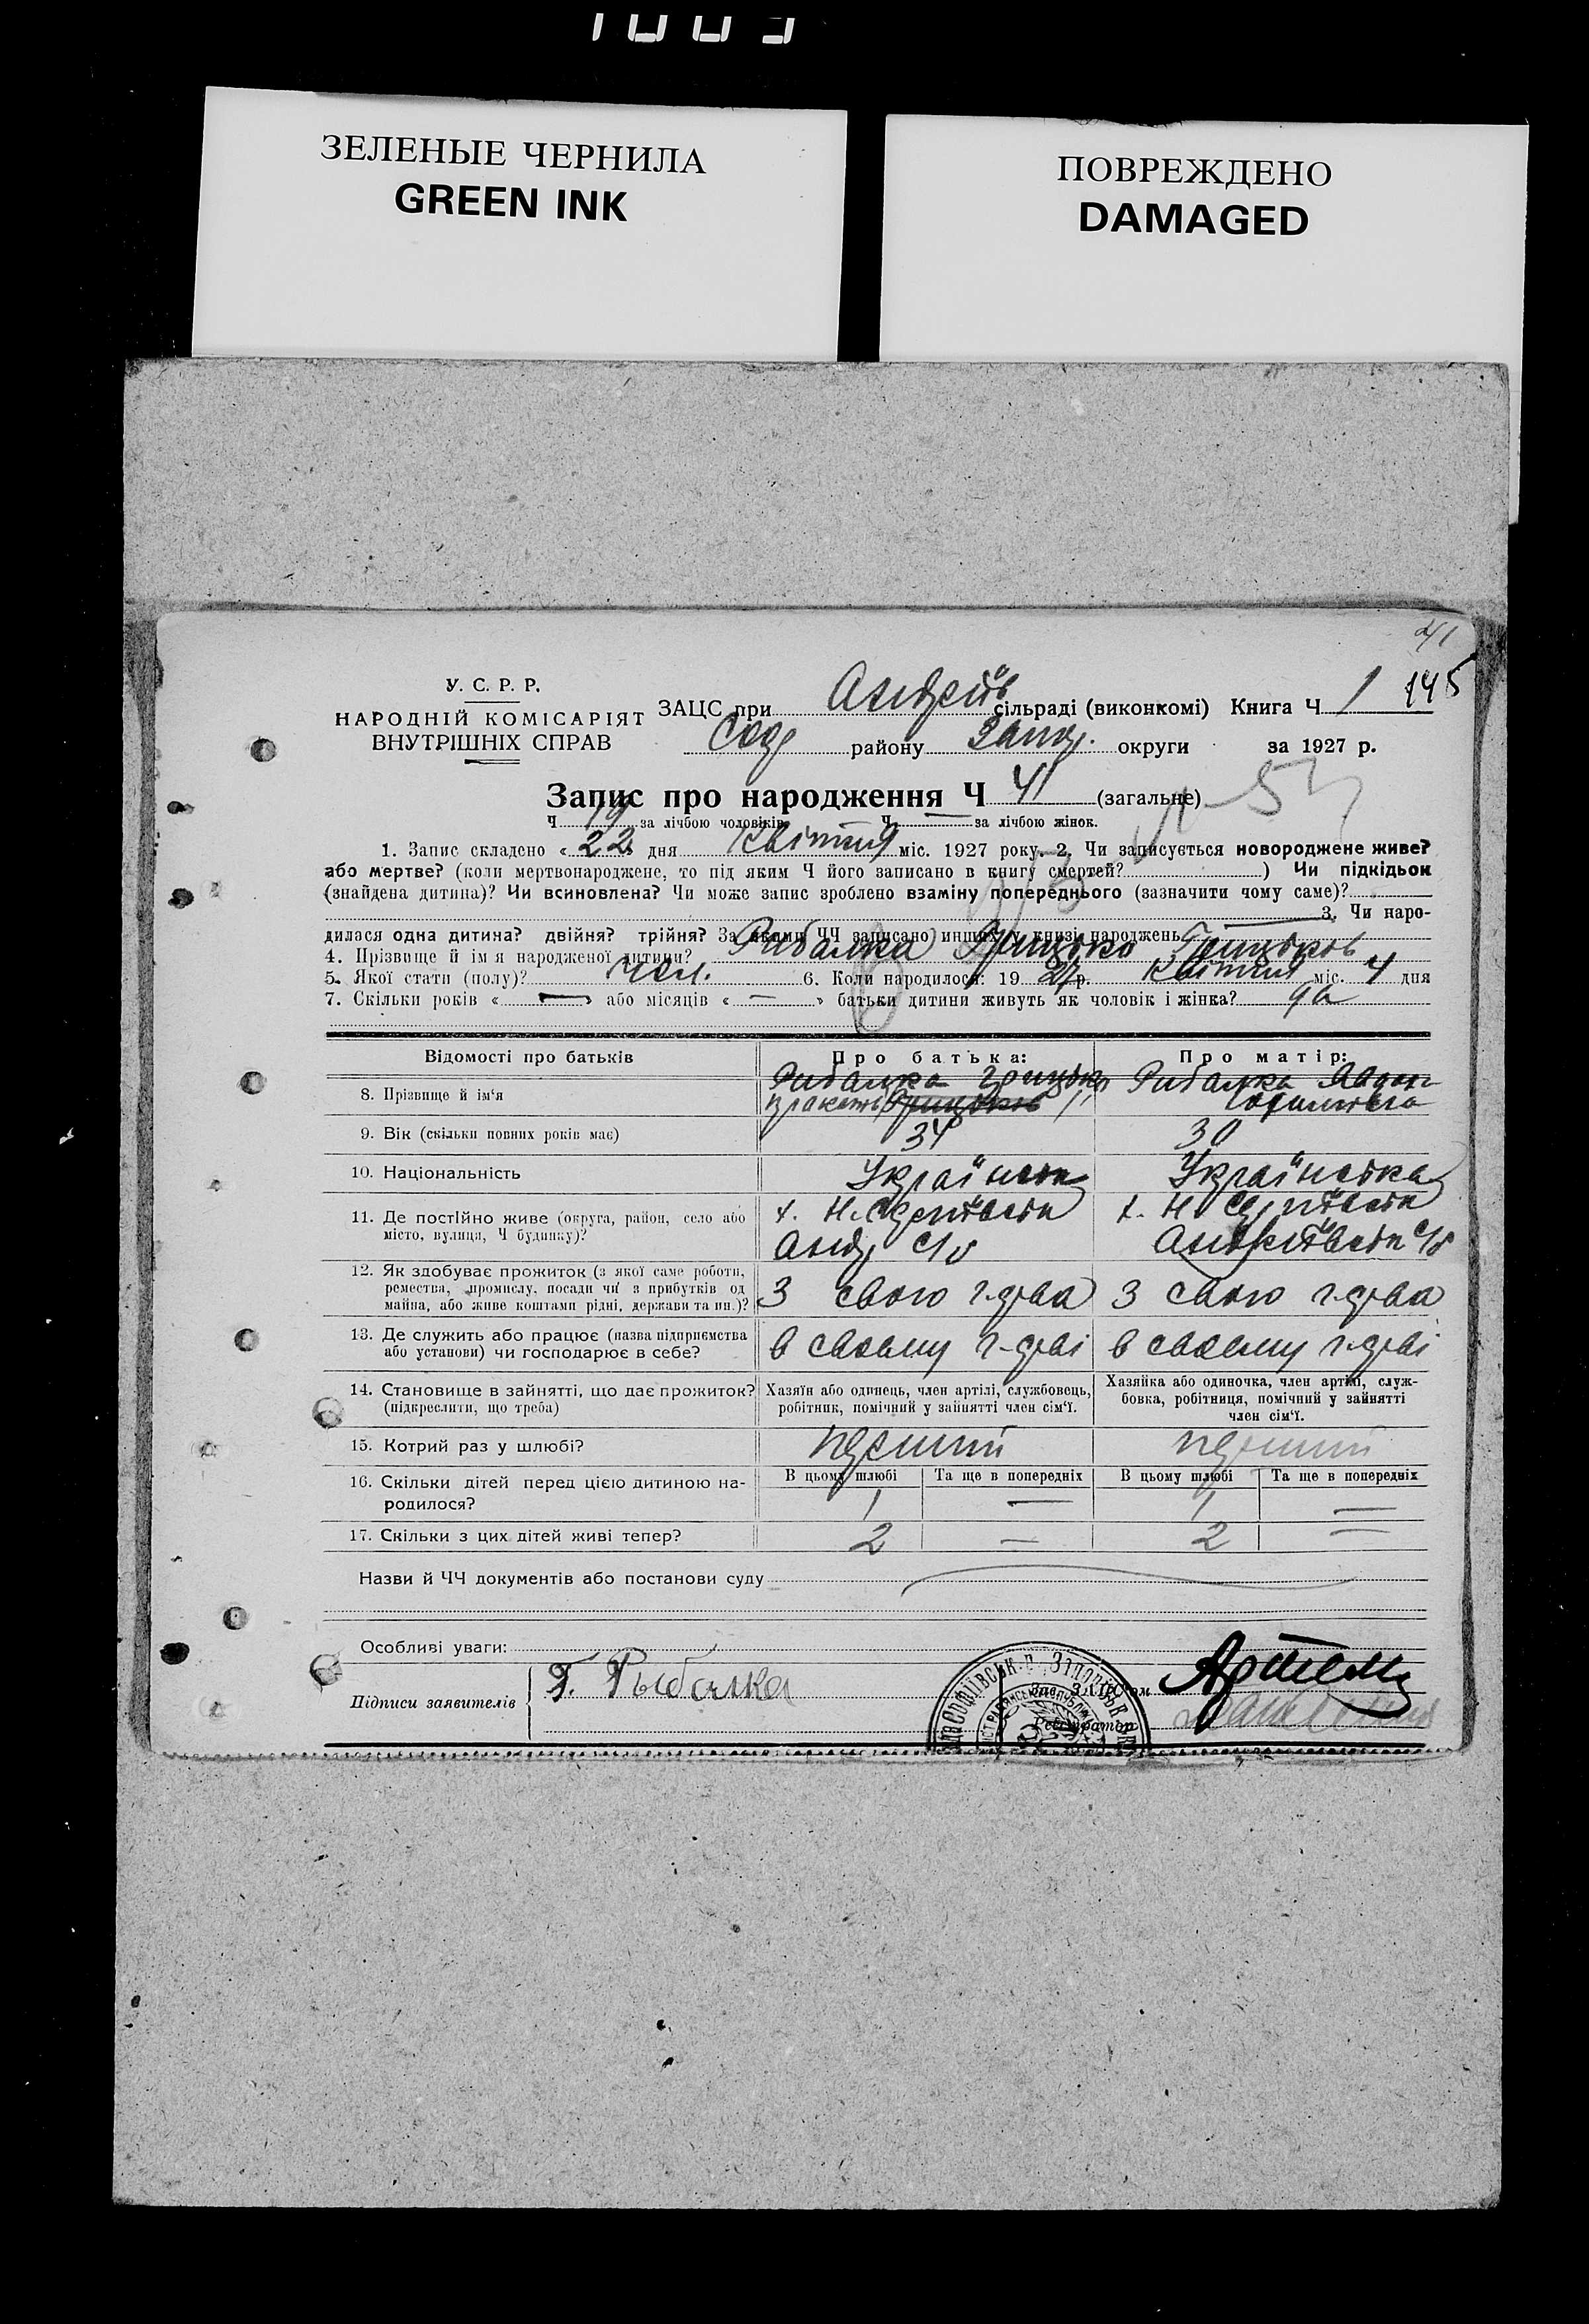 ЗЕЛЕНЫЕ ЧЕРНИЛА
GREEN INK
ПОВРЕЖДЕНО
DAMAGED
41
145
У. С. Р. Р.
НАРОДНІЙ КОМІСАРІЯТ
ВНУТРІШНІХ СПРАВ
ЗАЦС при Андреїв сільраді (виконкомі) Книга Ч 1
Соф району Запор. округи за 1927 р.
Запис про народження Ч 41 (загальне)
Ч 19 за лічбою чоловіків Ч — за лічбою жінок.
1. Запис складено «22» дня Квітня міс. 1927 року. 2. Чи записується новороджене живе?
або мертве? (коли мертвонароджене, то під яким Ч його записано в книгу смертей? ) Чи підкідьок
(знайдена дитина)? Чи всиновлена? Чи може запис зроблено взаміну попереднього (зазначити чому саме)?
3. Чи наро-
дилася одна дитина? двійня? трійня? За якими ЧЧ записано инших у книзі народжень
4. Прізвище й ім'я народженої дитини? Рибалка Грицько Грицьков
5. Якої стати (полу)? Чол. 6. Коли народилося: 19 27 р. Квітня міс. 4 дня
7. Скільки років « — » або місяців « — » батьки дитини живуть як чоловік і жінка? да
Відомості про батьків
Про батька:
Про матір:
8. Прізвище й ім'я
Рибалка Грицько
Рибалка
9. Вік (скільки повних років має)
34
30
10. Національність
Українець
Українська
11. Де постійно живе (округа, район, село або
місто, вулиця, Ч будинку)?
х. Н.
Андр с/р
х. Н
с/р
12. Як здобуває прожиток (з якої саме роботи,
ремества, промислу, посади чи з прибутків од
майна, або живе коштами рідні, держави та ин.)?
З свого г-дрва
З свого г-дрва
13. Де служить або працює (назва підприємства
або установи) чи господарює в себе?
в своєму г-дрві
в своєму г-дрві
14. Становище в зайнятті, що дає прожиток?
(підкреслити, що треба)
Хазяїн або одинець, член артілі, службовець,
робітник, помічний у зайнятті член сім'ї.
Хазяйка або одиночка, член артілі, служ-
бовка, робітниця, помічний у зайнятті
член сім'ї.
15. Котрий раз у шлюбі?
перший
перший
16. Скільки дітей перед цією дитиною на-
родилося?
В цьому шлюбі
Та ще в попередніх
В цьому шлюбі
Та ще в попередніх
1 — 1 —
17. Скільки з цих дітей живі тепер?
2 — 2 —
Назви й ЧЧ документів або постанови суду
Особливі уваги:
Підписи заявителів
Г. Рыбалка
Зав. ЗАЦС'ом
Реєстратор